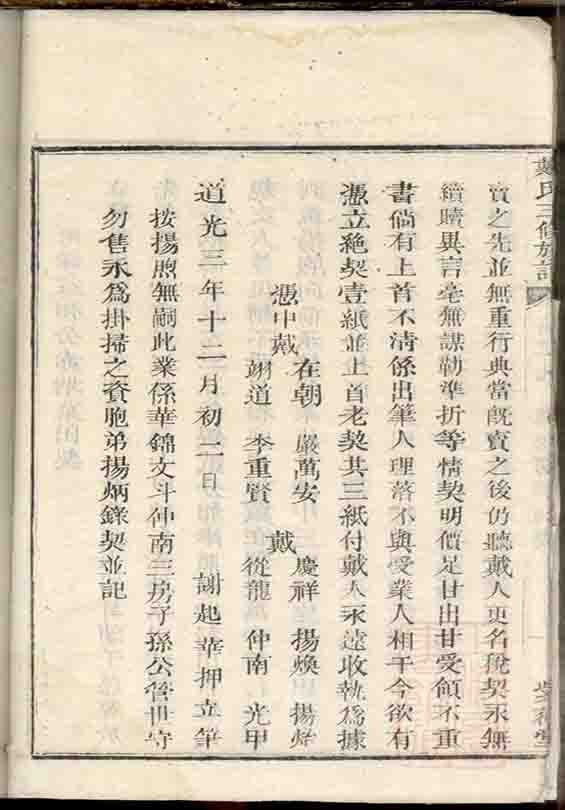 戴氏三修族譜
賣之先並無重行典當旣賣之後仍聽戴人更名稅契永無
續贖異言毫無謀勒準折等情契明價足甘出甘受領不重
書倘有上首不淸係出筆人理落不與受業人相干今欲有
憑立絶契壹紙並上首老契共三紙付戴人永遠收執爲據
憑中戴 在朝 嚴萬安 戴 慶祥 揚煥 揚
翊道 李重賢 從龍 仲南 光甲
道光三年十二月初二日 謝起華押立筆
按揚煦無嗣此業係華錦文斗仲南三房子孫公管世守
勿售永爲掛掃之資胞弟揚炳錄契並記